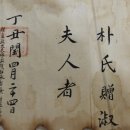 朴氏贈淑
夫人者
丁丑閏四月二十四